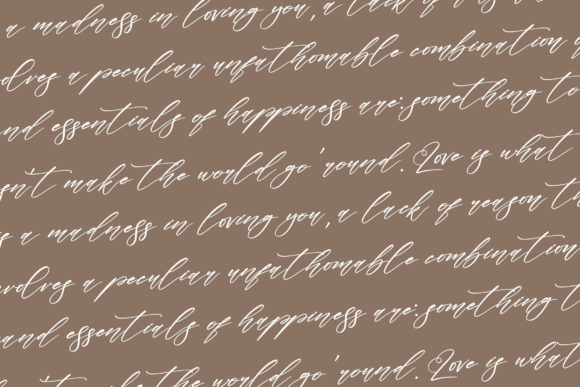 a madness in loving you, a lack of
olves a peculiar unfathomable combination
nd essentials of happiness are: something to
sn't make the world go 'round. Love is what
is a madness in loving you, a lack of reason th
volves a peculiar unfathomable combination
and essentials of happiness are: something t
n't make the world go 'round. Love is what